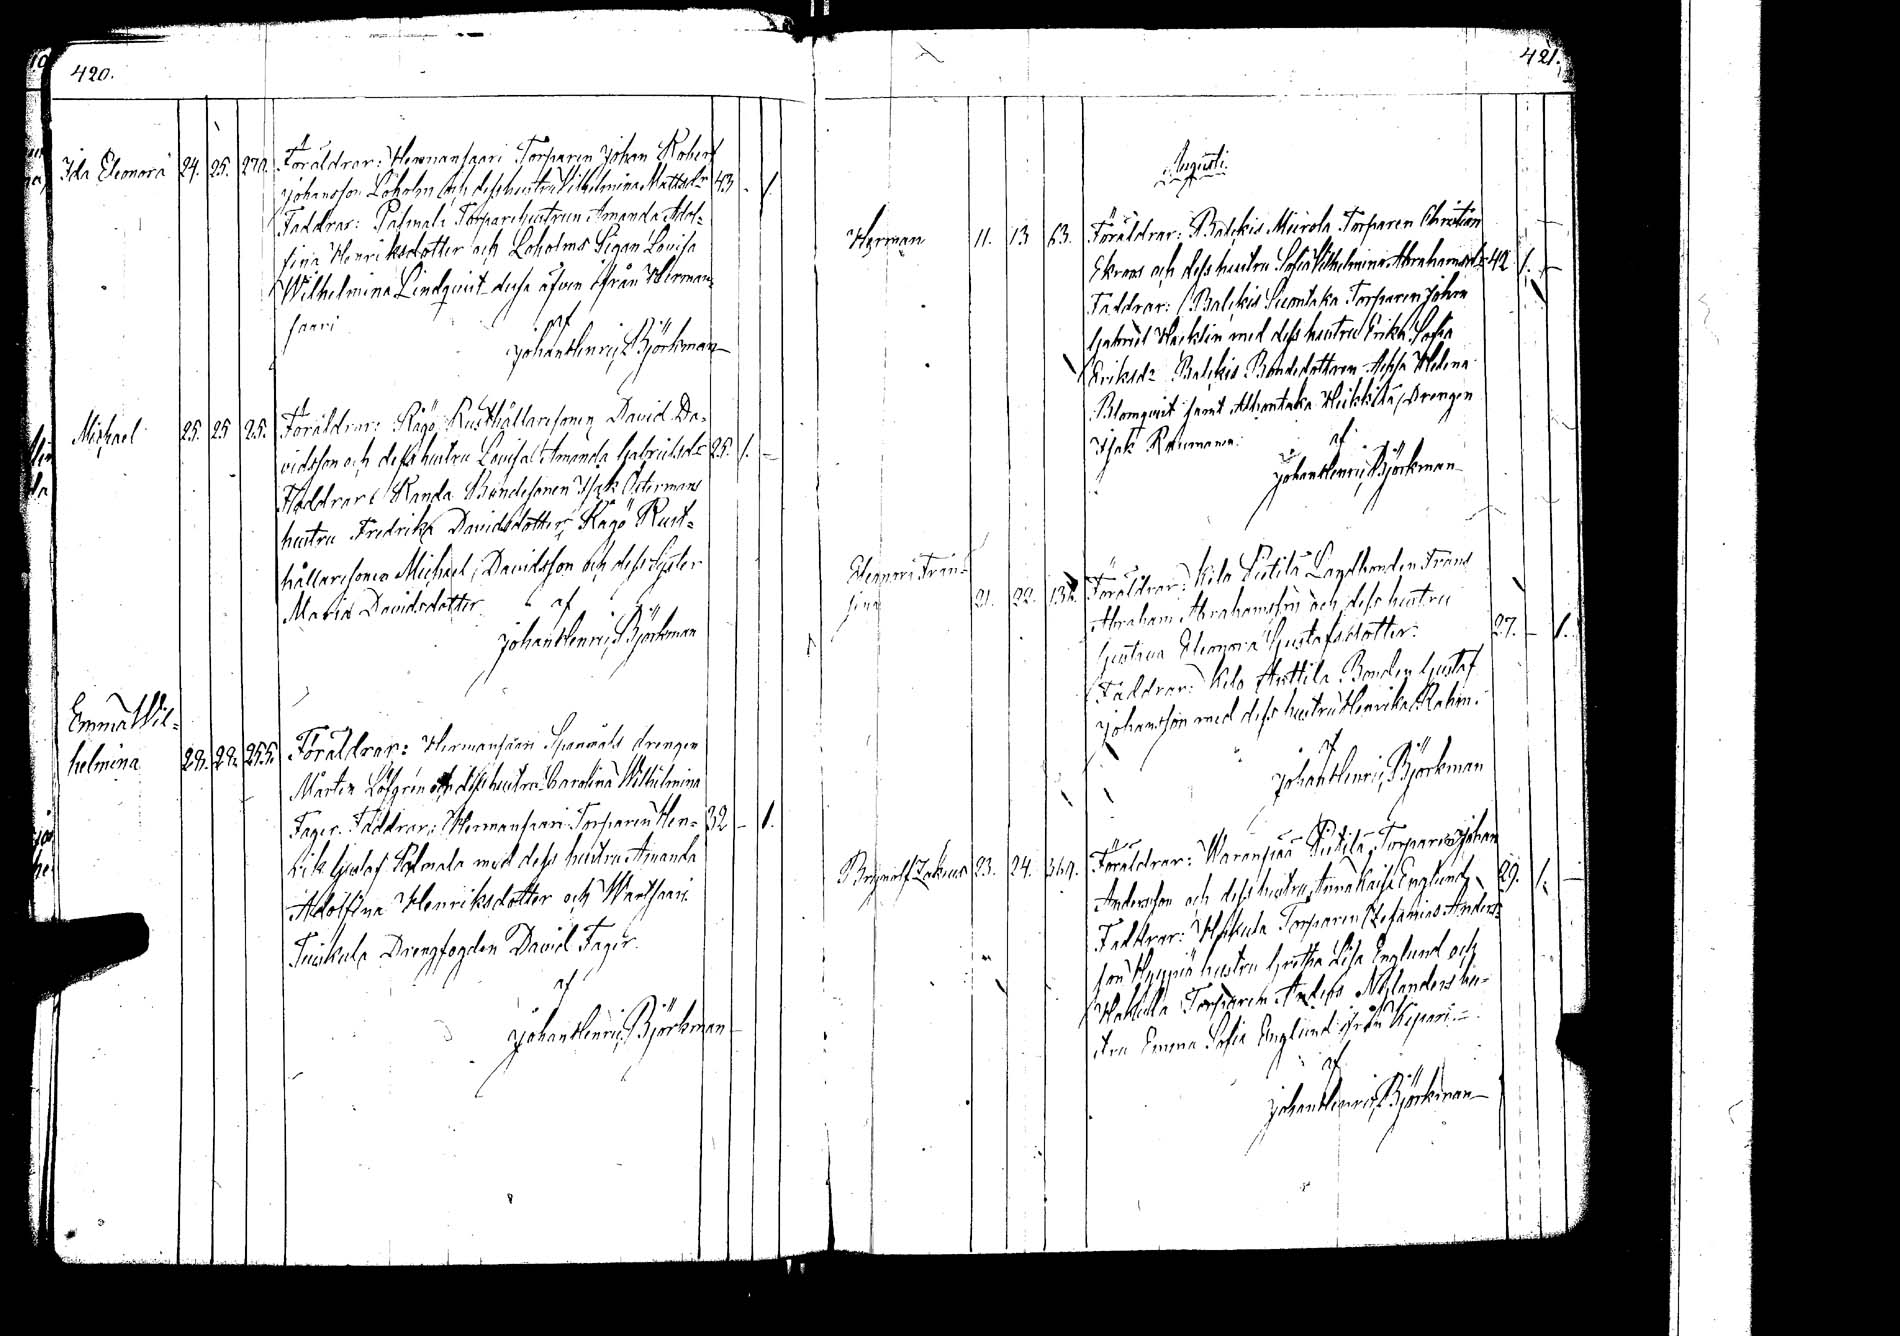 420.
Ida Eleonora 24. 25. 270. Föräldrar: Hermansaari Torparen Johan Robert
Johansson Löholm och dess hustru Vilhelmina Mattsdr 43 - 1.
Faddrar: Palmala Torparehustrun Amanda Adol=
fina Henriksdotter och Loholms Pigan Lovisa
Wilhelmina Lindqvist dessa äfven ifrån Herman=
saari
af
Johan Henric Björkman
Michael 25. 25 25. Föräldrar: Kågö Rusthållaresonen David Da=
vidsson och dess hustru Lovisa Amanda Gabrielsdr 25. 1. -
Faddrar: Randa Bondesonen Isak Östermans
hustru Fredrika Davidsdotter, Kågö Rust=
hållaresonen Michael Davidsson och dess Syster
Maria Davidsdotter
af
Johan Henric Björkman
Emma Wil=
helmina 29. 29. 255. Föräldrar: Hermansaari Spannvåls drengen
Mårten Löfgren och dess hustru Carolina Wilhelmina
Fager. Faddrar: Hermansaari Torparen Hen= 32 - 1.
rik Gustaf Palmala med dess hustru Amanda
Adolfina Henriksdotter och Wartsaari
Tuiskula Drengfogden David Fager.
af
Johan Henric Björkman
421.
Augusti.
Herman 11. 13 63. Föräldrar: Balckis Mierola Torparen Christian
Ekroos och dess hustru Sofia Vilhelmina Abrahamsdr 42 1. -
Faddrar: Balckis Suontaka Torparen Johan
Gabriel Hacklin med dess hustru Erika Sofia
Eriksdr Balckis Bondedottren Helena
Blomqvist samt Heikkilä Drengen
Isak Raumanen.
af
Johan Henric Björkman
Eleonora Fran=
sina 21. 22. Föräldrar: Kila Pietilä Landbonden Frans
Abraham Abrahamsson och dess hustru
Gustava Eleonora Gustafsdotter. 27. - 1.
Faddrar: Kila Anttila Bonden Gustaf
Johansson med dess hustru Henrika Rahm.
af
Johan Henric Björkman
Brynolf Zakeus 23. 24. 369. Föräldrar: Waranpää Pietilä Torparen Johan
Andersson och dess hustru Anna Kaisa Englund 29. 1. -
Faddrar: Torparen Anders=
son hustru Gretha Lisa Englund och
Hakula Torparen Anders Nylanders hu=
stru Emma Sofia Englund ifrån
af
Johan Henric Björkman